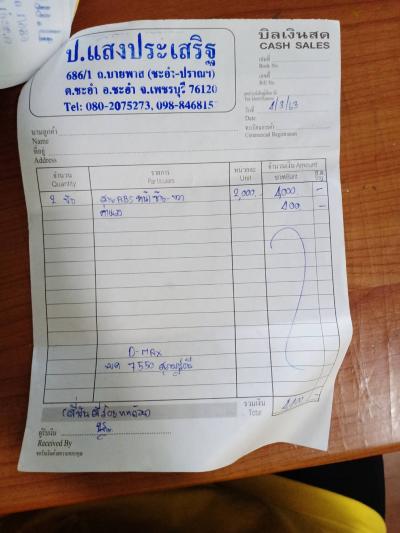 ป.แสงประเสริฐ
686/1 ถ.บายพาส (ชะอำ-ปราณฯ)
ต.ชะอำ อ.ชะอำ จ.เพชรบุรี 76120
Tel: 080-2075273, 098-846815
บิลเงินสด
CASH SALES
เล่มที่
Book No.
เลขที่
Bill No.
วันที่ 4/3/63
Date
ทะเบียนการค้า
Commercial Registration
นามลูกค้า
Name
ที่อยู่
Address
จำนวน รายการ หน่วยละ จำนวนเงิน Amount
Quantity Particulars Unit บาท/Baht
2 ชิ้น สาย ABS หน้า ซ้าย-ขวา 2,000.- 4,000 -
ค่าแรง 400 -
D-MAX
7550
รวมเงิน
Total 4,400 -
(สี่พันสี่ร้อยบาทถ้วน)
ผู้รับเงิน
Received By